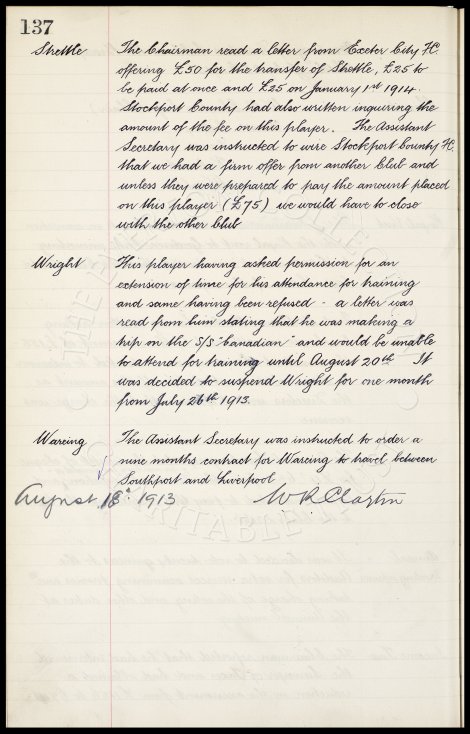 137
Strettle The Chairman read a letter from Exeter City FC.
offering £50 for the transfer of Strettle, £25 to
be paid at once and £25 on January 1st 1914.
Stockport County had also written inquiring the
amount of the fee on this player. The Assistant
Secretary was instructed to wire Stockport County FC
that we had a firm offer from another Club and
unless they were prepared to pay the amount placed
on this player (£75) we would have to close
with the other Club
Wright This player having asked permission for an
extension of time for his attendance for training
and same having been refused - a letter was
read from him stating that he was making a
trip on the S/S "Canadian" and would be unable
to attend for training until August 20th It
was decided to suspend Wright for one month
from July 26th 1913.
Wareing The Assistant Secretary was instructed to order a
nine months contract for Wareing to travel between
Southport and Liverpool
August 18th 1913 W.R. Clayton